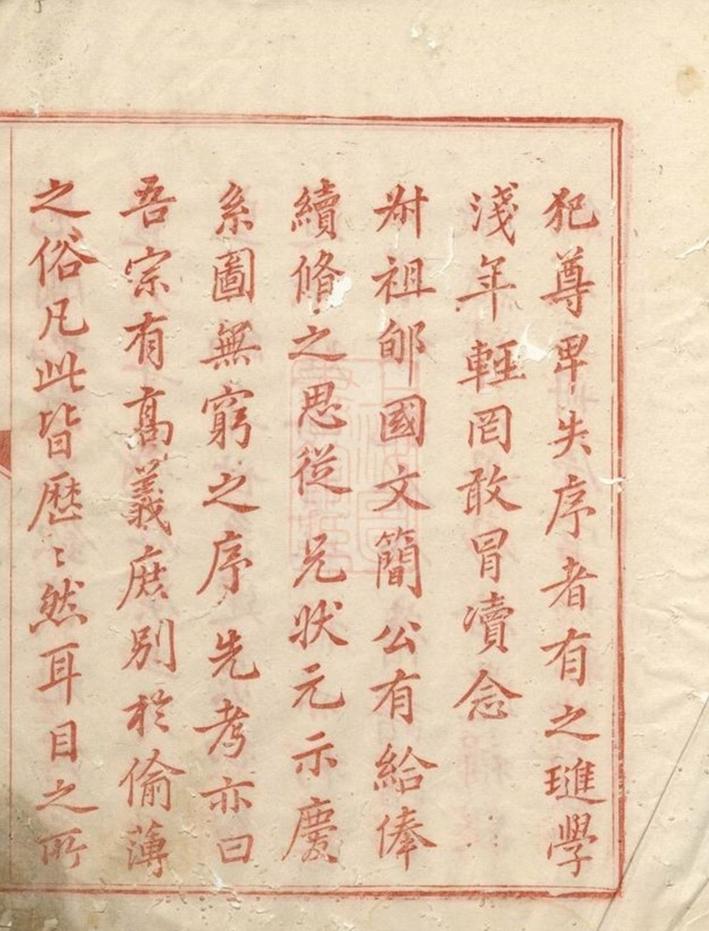 犯尊卑失序者有之璡學
淺年輕罔敢冒瀆念
叔祖郇國文簡公有給俸
續脩之思從兄狀元示慶
系圖無窮之序先考亦曰
吾宗有高義庶別於偷薄
之俗凡此皆歷〻然耳目之所